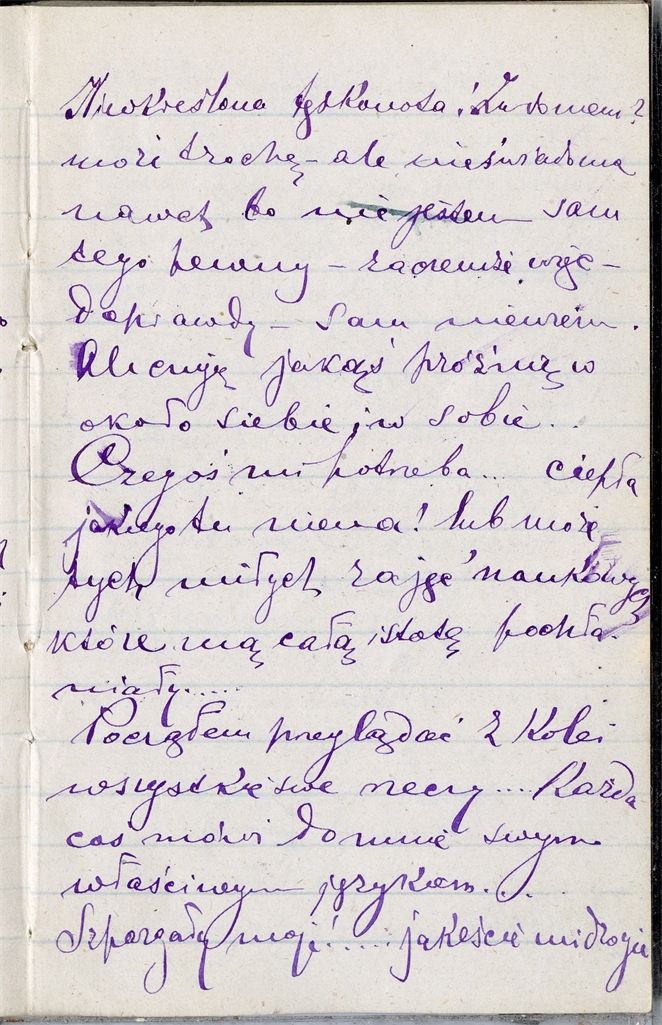 Nieokreślona tęsknota! Za domem?
może trochę – ale nieświadoma
nawet bo nie jestem sam
tego pewny – za czemże więc –
doprawdy – sam niewiem.
Ale czuję jakąś próżnię w
około siebie i w sobie...
Czegoś mi potrzeba... ciepła
jakiego tu niema! lub może
tych miłych zajęć naukowych
które mą całą istotę pochła-
niały.....
Począłem przeglądać z kolei
wszystkie swe rzeczy... Każda
coś mówi do mnie swym
właściwym językiem...
Szpargały moje!.... jakeście mi drogie